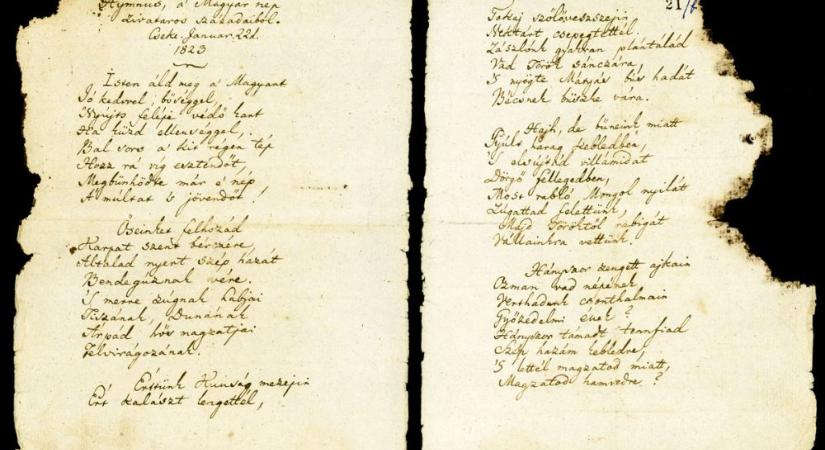 Hymnus, a' Magyar nép
Zivataros századaiból.
Cseke Januar. 22d.
1823
Isten áld meg a Magyart
Jó kedvvel, bőséggel,
Nyújts feléje védő kart
Ha küzd ellenséggel,
Bal sors a kit régen tép
Hozz rá víg esztendőt,
Megbűnhödte már e' nép
A' múltat 's jövendőt!
Őseinket felhozád
Kárpát szent bérczére,
Általad nyert szép hazát
Bendegúznak vére.
'S merre zúgnak habjai
Tiszának, Dunának
Árpád hős magzatjai
Felvirágozának.
Értünk Kunság mezején
Ért kalászt lengettél,
21/
Tokaj szőlővesszejin
Nektárt csepegtettél.
Zászlónk gyakran plántálád
Vad Török sánczára,
'S nyögte Mátyás bús hadát
Bécsnek büszke vára.
Hajh, de bűneink miatt
Gyúlt harag kebledben,
'S elsújtád villámidat
Dörgő fellegedben,
Most rabló Mongol nyilát
Zúgattad felettünk,
Majd Töröktől rabigát
Vállainkra vettünk.
Hányszor zengett ajkain
Ozman vad népének
Vert hadunk csonthalmain
Győzedelmi ének?
Hányszor támadt tenfiad
Szép hazám kebledre,
'S lettél magzatod miatt,
Magzatod hamvedre?